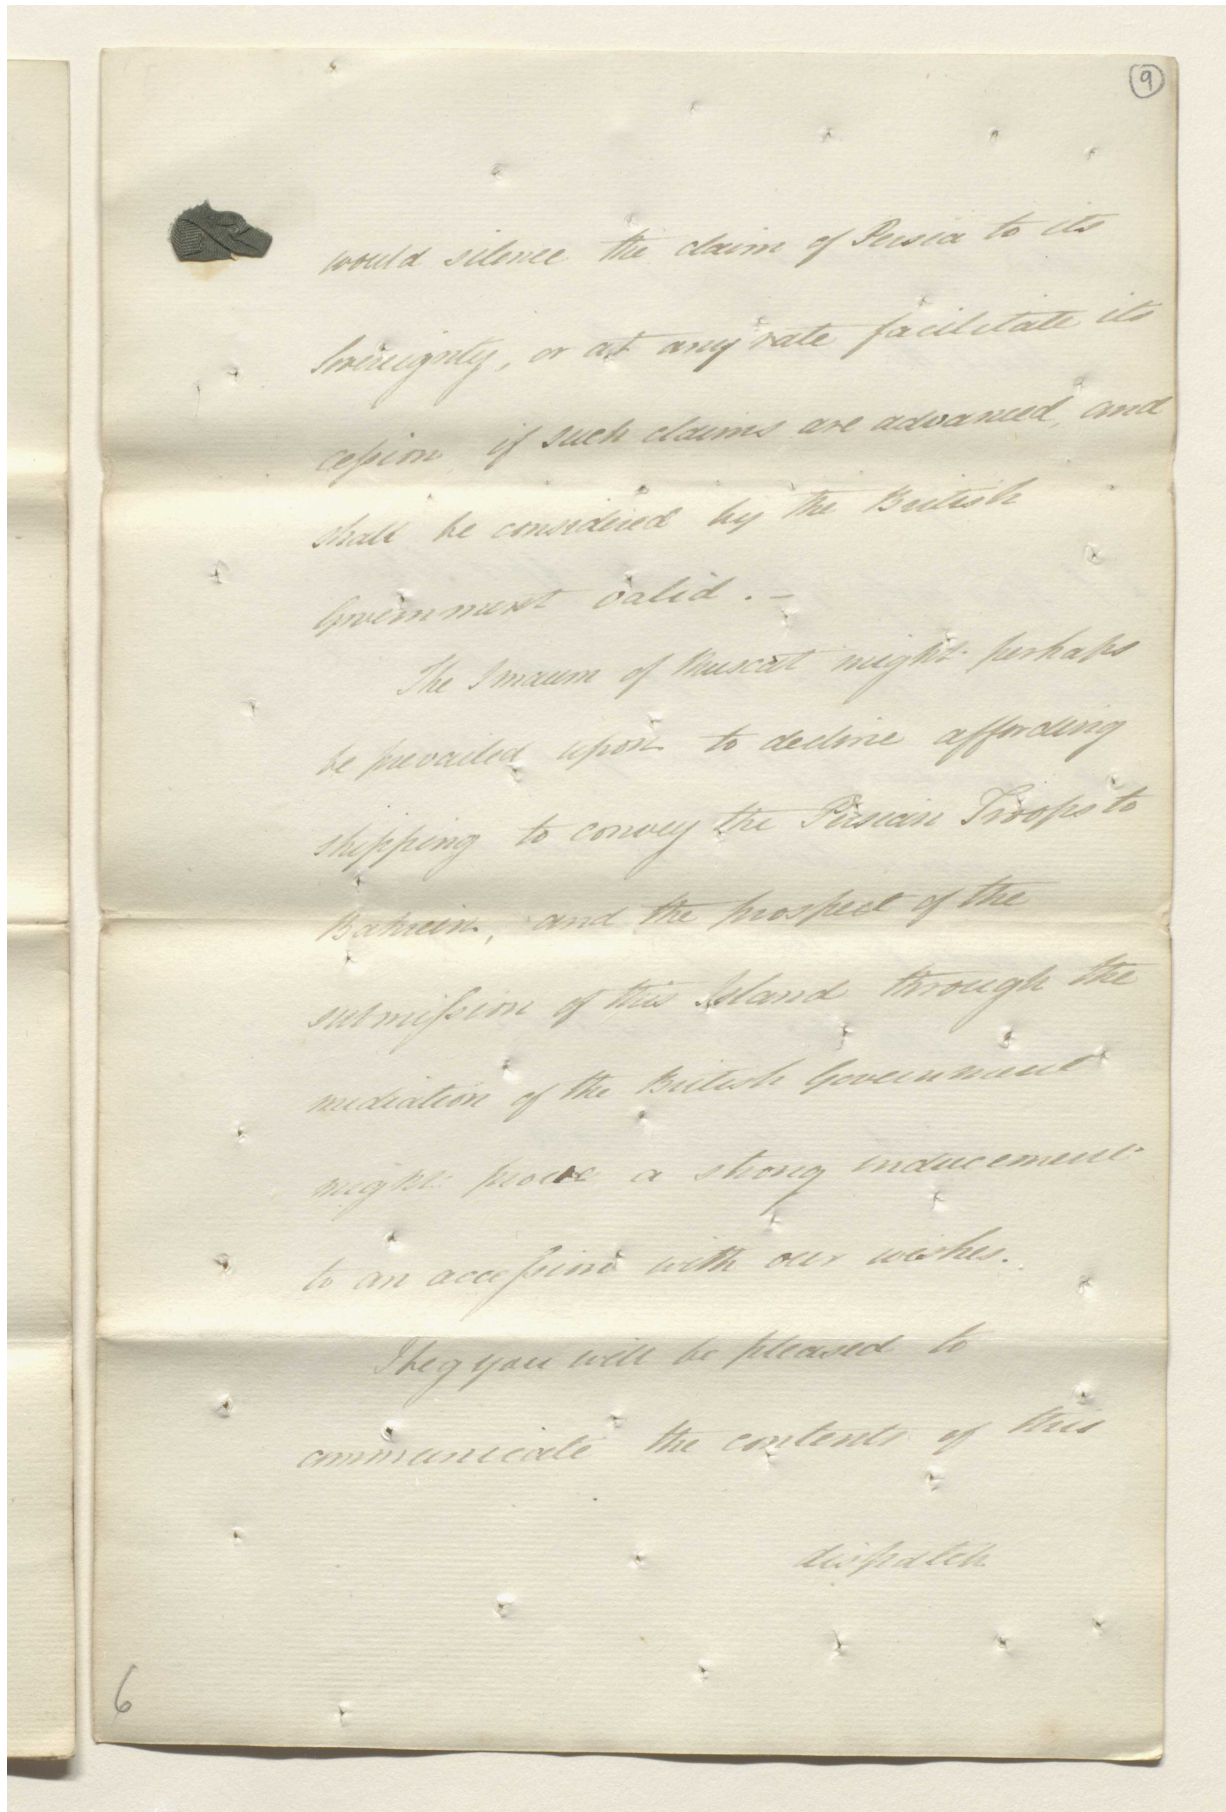 9
would silence the claim of Persia to its
Sovereignty, or at any rate facilitate its
cession, if such claims are advanced, and
shall be considered by the British
Government valid. -
The Imaum of Muscat might perhaps
be prevailed upon to decline affording
shipping to convey the Persian Troops to
Bahrein, and the prospect of the
submission of this Island through the
mediation of the British Government
might prove a strong inducement
to an accession with our wishes.
I beg you will be pleased to
communicate the contents of this
dispatch
6